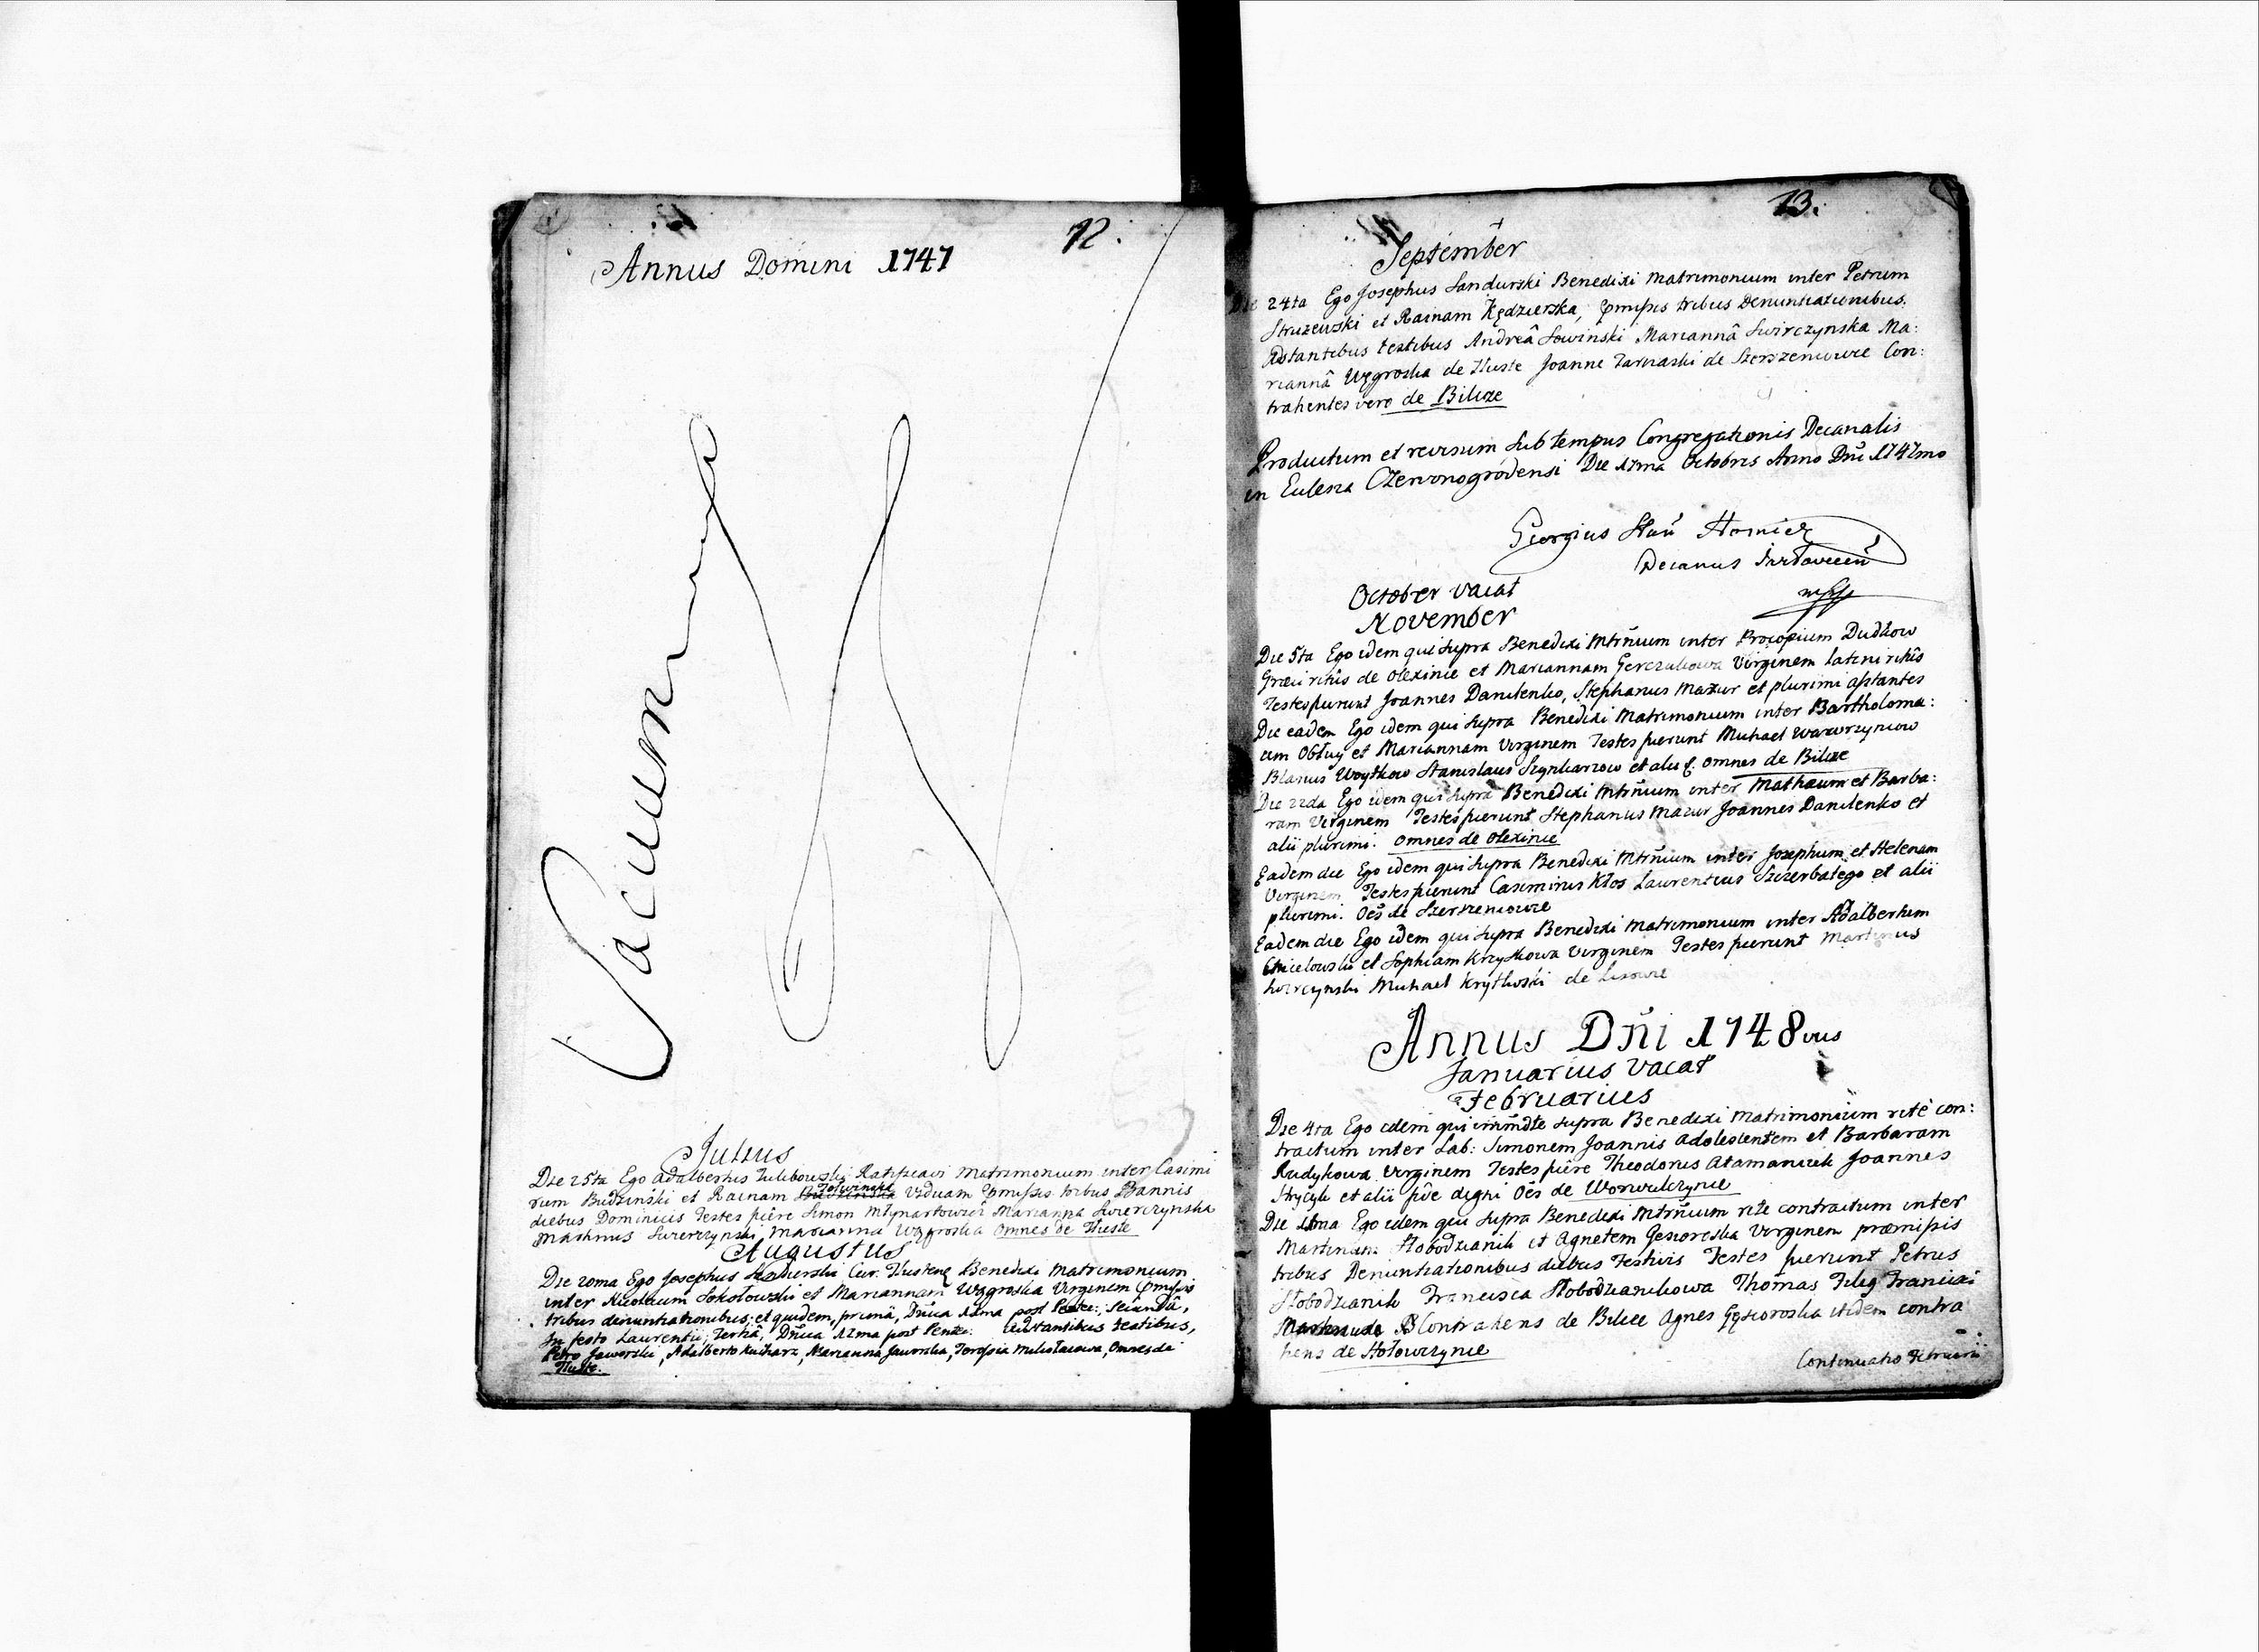 12.
Annus Domini 1747
Vacuum
Julius
Die 25ta Ego Adalbertus Ratificavi Matrimonium inter Casimi
rum Budzinski et Rainam Viduam tribus Bannis
diebus Dominicis Testes fûere Simon Młynartowicz Marianna Swierczynska
Martinus Swierczynski Marianna Węgroska Omnes de Tłuste
Augustus
Die 20ma Ego Josephus Cur. Benedixi Matrimonium
inter Nicolaum Sokołowski et Mariannam Virginem
tribus denuntiationibus; et quidem, primâ, Dñica post Pente: secundâ,
In festo Laurentii, Tertiâ, Dñica 12ma post Pente: testibus,
Petro Jaworski, Adalberto Kucharz, Marianna Jaworska, Omnes de
Tłuste.
13.
September
Die 24ta Ego Josephus Sandurski Benedixi Matrimonium inter Petrum
Struzewski et Rainam Kędzierska, tribus Denuntiationibus.
Adstantibus testibus Andreâ Sowinski Mariannâ Swirczynska Ma:
riannâ Węgroska de Tłuste Joanne Tarnaski de Szerszeniowce Con:
trahentes vero de Bilcze
Productum et revisum sub tempus Congregationis Decanalis
in Eclesia Czerwonogrodensi Die 17ma Octobris Anno Dñi 1747mo
Georgius
Decanus
October vacat
November
Die 5ta Ego idem qui supra Benedixi Mtrñium inter Procopium Dudkow
Græci ritûs de Olexince et Mariannam Virginem latini ritûs
Testes fuerunt Joannes Danilenko, Stephanus Mazur et plurimi astantes
Die eadem Ego idem qui supra Benedixi Matrimonium inter Bartholomæ:
um et Mariannam Virginem Testes fuerunt Michael Wawrzyniow
Blasius Woytkow Stanislaus Szynkarzow et alii omnes de Bilcze
Die 22da Ego idem qui supra Benedixi Mtrñium inter Mathæum et Barba:
ram Virginem Testes fuerunt Stephanus Mazur Joannes Danilenko et
alii plurimi. Omnes de Olexince
Eadem die Ego idem qui supra Benedixi Mtrñium inter Josephum et Helenam
Virginem Testes fuerunt Casimirus Kłos Laurentius Szczerbatego et alii
plurimi. Oẽs de Szerszeniowce
Eadem die Ego idem qui supra Benedixi Matrimonium inter Adalbertum
et Sophiam Krzyskowa Virginem Testes fuerunt Martinus
Michael de Lisowce
Annus Dñi 1748vus
Januarius Vacat
Februarius
Die 4ta Ego idem qui supra Benedixi Matrimonium ritè con:
tractum inter Lab: Simonem Joannis adolescentem et Barbaram
Rudykowa Virginem Testes fûere Theodorus Atamanczek Joannes
et alii digni Oẽs de Worwulczynce
Die Ego idem qui supra Benedixi Mtrñium rite contractum inter
Martinum Słobodzianik et Agnetem Virginem præmissis
tribus Denuntiationibus diebus Festivis Testes fuerunt Petrus
Słobodzianik Francisca Słobodzianikowa Thomas
Contrahens de Bilcze Agnes itidem contra
hens de Hołowczynce
Continuatio